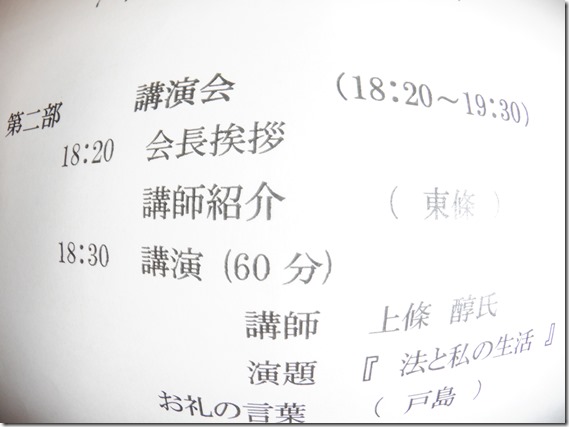 第二部 講演会 (18:20〜19:30)
18:20 会長挨拶
講師紹介 ( 東條 )
18:30 講演 (60 分)
講師 上條 醇氏
演題 『 法と私の生活 』
お礼の言葉 ( 戸島 )